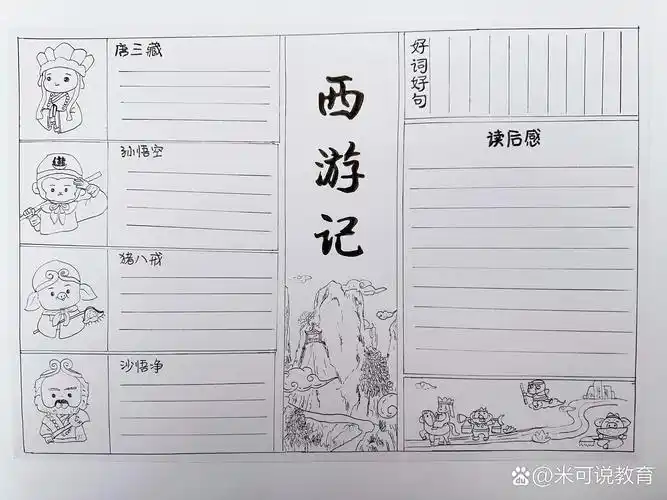 唐三藏
孙悟空
猪八戒
沙悟净
西游记
好词好句
读后感
米可说教育